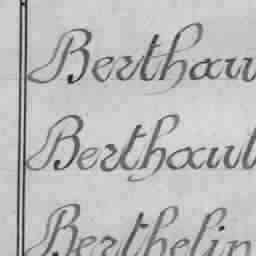 Berthau
Berthaut
Berthelin